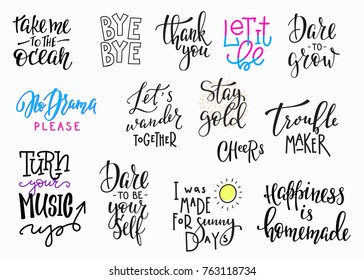 take me
TO THE
ocean
BYE
BYE
thank
you
LET it
be
Dare
-to-
grow
No Drama
PLEASE
Let's
wander
TOGETHER
Stay
gold
CHEERS
Trouble
MAKER
TURN
your
MUSIC
up
Dare
TO BE
your
Self
I was
MADE
FOR Sunny
DAYS
Happiness
is
homemade
shutterstock.com · 763118734